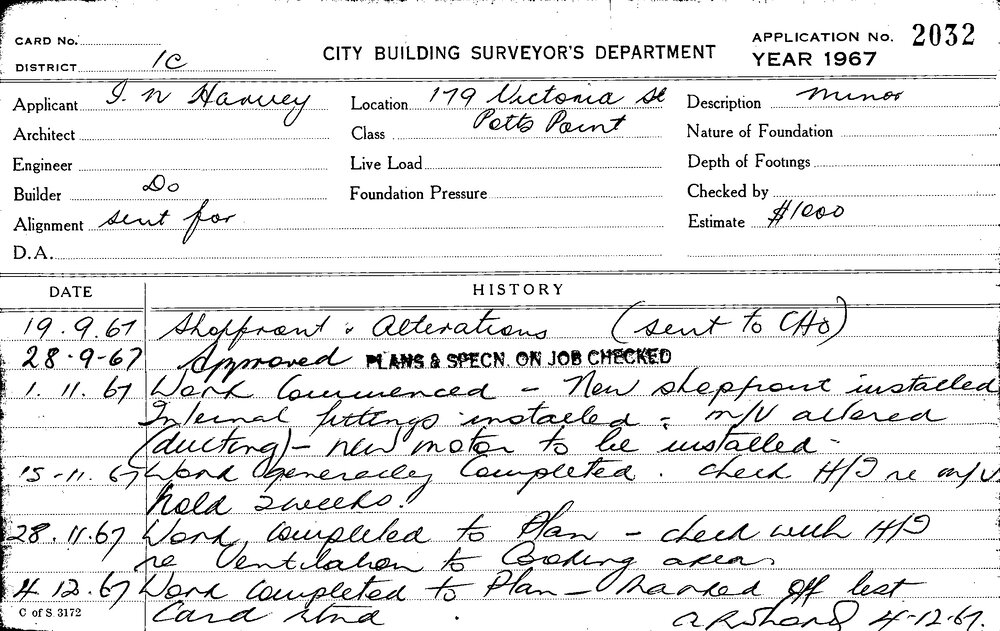 CARD No.
DISTRICT 1C
CITY BUILDING SURVEYOR'S DEPARTMENT
APPLICATION No. 2032
YEAR 1967
Applicant I. N Harvey
Location 179 Victoria St
Potts Point
Description Minor
Architect
Class
Nature of Foundation
Engineer
Live Load
Depth of Footings
Builder Do
Foundation Pressure
Checked by
Alignment sent for
Estimate $1000
D.A.
DATE HISTORY
19.9.67 Shopfront & Alterations (sent to CHO)
28-9-67 Approved PLANS & SPECN. ON JOB CHECKED
1.11.67 Work Commenced - New shopfront installed
Internal fittings installed : m/V altered
(ducting) - new motor to be installed -
15-11.67 Work generally Completed. check H/I re m/V
hold 2 weeks.
28.11.67 Work completed to Plan - check with H/I
re Ventilation to Cooking area
4.12.67 Work completed to Plan - marked off list
Card
C of S 3172
4-12-67.